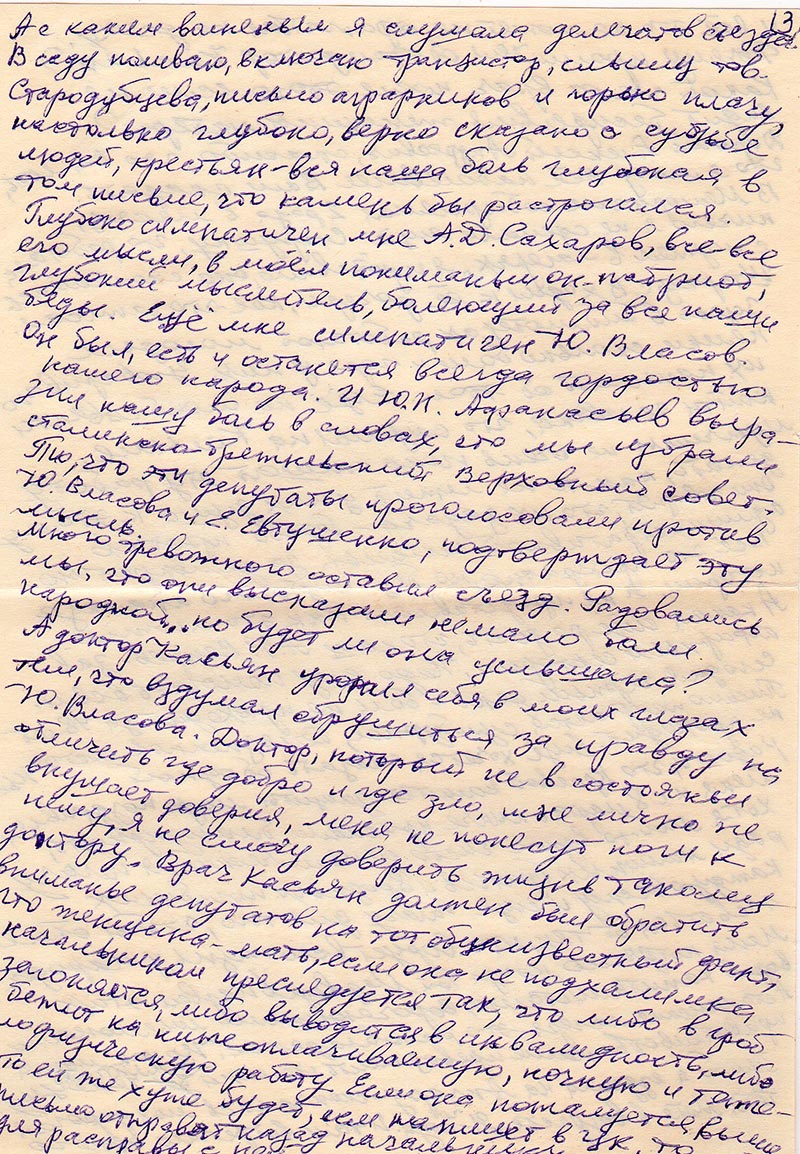 13
А с каким волненьем я слушала делегатов съезда!
В саду поливаю, включаю транзистор, слышу тов.
Стародубцева, письмо аграрников и горько плачу,
настолько глубоко, верно сказано о судьбе
людей, крестьян - вся наша боль глубокая в
том письме, что камень бы растрогался.
Глубоко симпатичен мне А.Д. Сахаров, все-все
его мысли, в моём пониманьи он - патриот,
глубокий мыслитель, болеющий за все наши
беды. Ещё мне симпатичен Ю. Власов.
Он был, есть и останется всегда гордостью
нашего народа. И Ю.Н. Афанасьев выра-
зил нашу боль в словах, что мы избрали
сталинско-брежневский Верховный совет.
То, что эти депутаты проголосовали против
Ю. Власова и Е. Евтушенко, подтверждает эту
мысль.
Много тревожного оставил съезд. Радовались
мы, что они высказали немало боли
народной,.. но будет ли она услышана?
А доктор Касьян уронил себя в моих глазах
тем, что вздумал обрушиться за правду на
Ю. Власова. Доктор, который не в состояньи
отличить где добро и где зло, мне лично не
внушает доверия, меня не понесут ноги к
нему, я не смогу доверить жизнь такому
доктору. Врач Касьян должен был обратить
вниманье депутатов на тот общеизвестный факт,
что женщина-мать, если она не подхалимка
начальником преследуется так, что либо в гроб
загоняется, либо выводится в инвалидность, либо
бежит на нижеоплачиваемую, ночную и тяже-
лофизическую работу. Если она пожалуется выше
то ей же хуже будет, если напишет в ЦК, то
письмо отправят назад начальнику
для расправы с